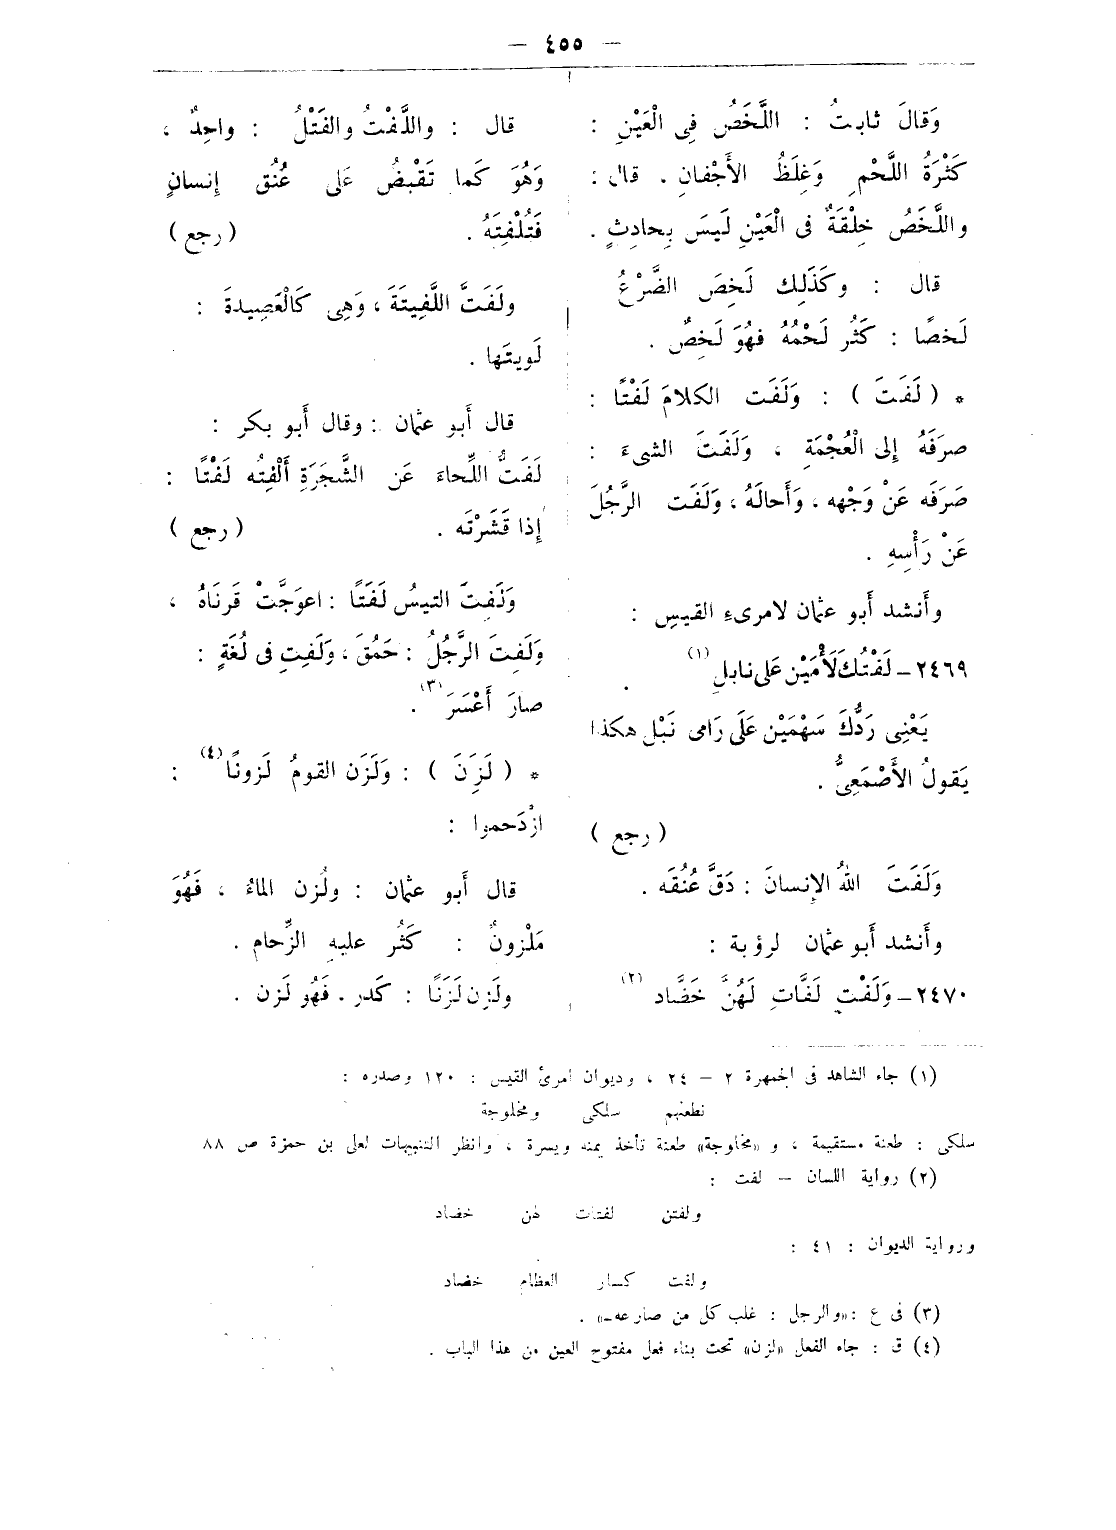 — ٤٥٥ —
وَقالَ ثابتُ : اللَّخَصُ فِى الْعَيْنِ :
كَثْرَةُ اللَّحْمِ وَغِلَظُ الأَجْفانِ . قال :
واللَّخَصُ خِلْقَةٌ فى الْعَيْنِ لَيسَ بِحادِثٍ .
قال : وكَذَلِك لَخِصَ الضَّرْعُ
لَخصًا : كَثُر لَحْمُهُ فهُوَ لَخِصٌ .
* ( لَفَتَ ) : وَلَفَت الكلامَ لَفْتًا :
صرَفَهُ إلى الْعُجْمَةِ ، وَلَفَتَ الشىءَ :
صَرَفَه عَنْ وَجْهه ، وَأَحالَهُ ، وَلَفَت الرَّجُلَ
عَنْ رَأْسِهِ .
وأَنشد أَبو عثمان لامرىءِ القيسِ :
٢٤٦٩ – لَفْتُكَ لَأْمَيْن عَلى نابلِ (١)
يَعْنِى رَدُّكَ سَهْمَيْن عَلَى رَامى نَبْل هكذا
يَقولُ الأَصْمَعِىُّ .
( رجع )
وَلَفَتَ اللهُ الإنسانَ : دَقَّ عُنُقَه .
وأَنشد أَبو عثمان لرؤبة :
٢٤٧٠ – وَلَفْتِ لَفَّاتِ لَهُنَّ خَضَّاد (٢)
قال : واللَّفْتُ والفَتْلُ : واحِدٌ ،
وَهُوَ كَما تَقْبضُ عَلى عُنُق إنسانٍ
فَتُلْفِتَهُ . ( رجع )
ولَفَتَّ اللَّفِيتَةَ ، وَهِى كَالْعَصِيدةَ :
لَويتَها .
قال أَبو عثمان : وقال أَبو بكر :
لَفَتُّ اللِّحاءَ عَن الشَّجَرَةِ أَلْفِتُه لَفْتًا :
إذا قَشَرْتَه . ( رجع )
وَلَفِتَ التيسُ لَفَتًا : اعوَجَّتْ قَرنَاهُ ،
وَلَفِتَ الرَّجُلُ : حَمُقَ ، وَلَفِتِ فى لُغَةٍ :
صارَ أَعْسَرَ (٣) .
* ( لَزَِنَ ) : وَلَزَن القومُ لَزونًا (٤) :
ازْدَحموا :
قال أَبو عثمان : ولُزن الماءُ ، فَهُوَ
مَلْزونٌ : كَثُر عليهِ الزِّحام .
ولَزِن لَزَنًا : كدر . فَهُو لَزن .
(١) جاء الشاهد فى الجمهرة ٢ – ٢٤ ، وديوان امرئ القيس : ١٢٠ وصدره :
نطعنهم سلكى ومخلوجة
سلكى : طعنة مستقيمة ، و «مخلوجة» طعنة تأخذ يمنه ويسرة ، وانظر التنبيهات لعلى بن حمزة ص ٨٨
(٢) رواية اللسان – لفت :
ولفتن لفتات لهن خضاد
ورواية الديوان : ٤١ :
ولفت كسار العظام خضاد
(٣) فى ع : «والرجل : غلب كل من صارعه» .
(٤) ق : جاء الفعل «لزن» تحت بناء فعل مفتوح العين من هذا الباب .